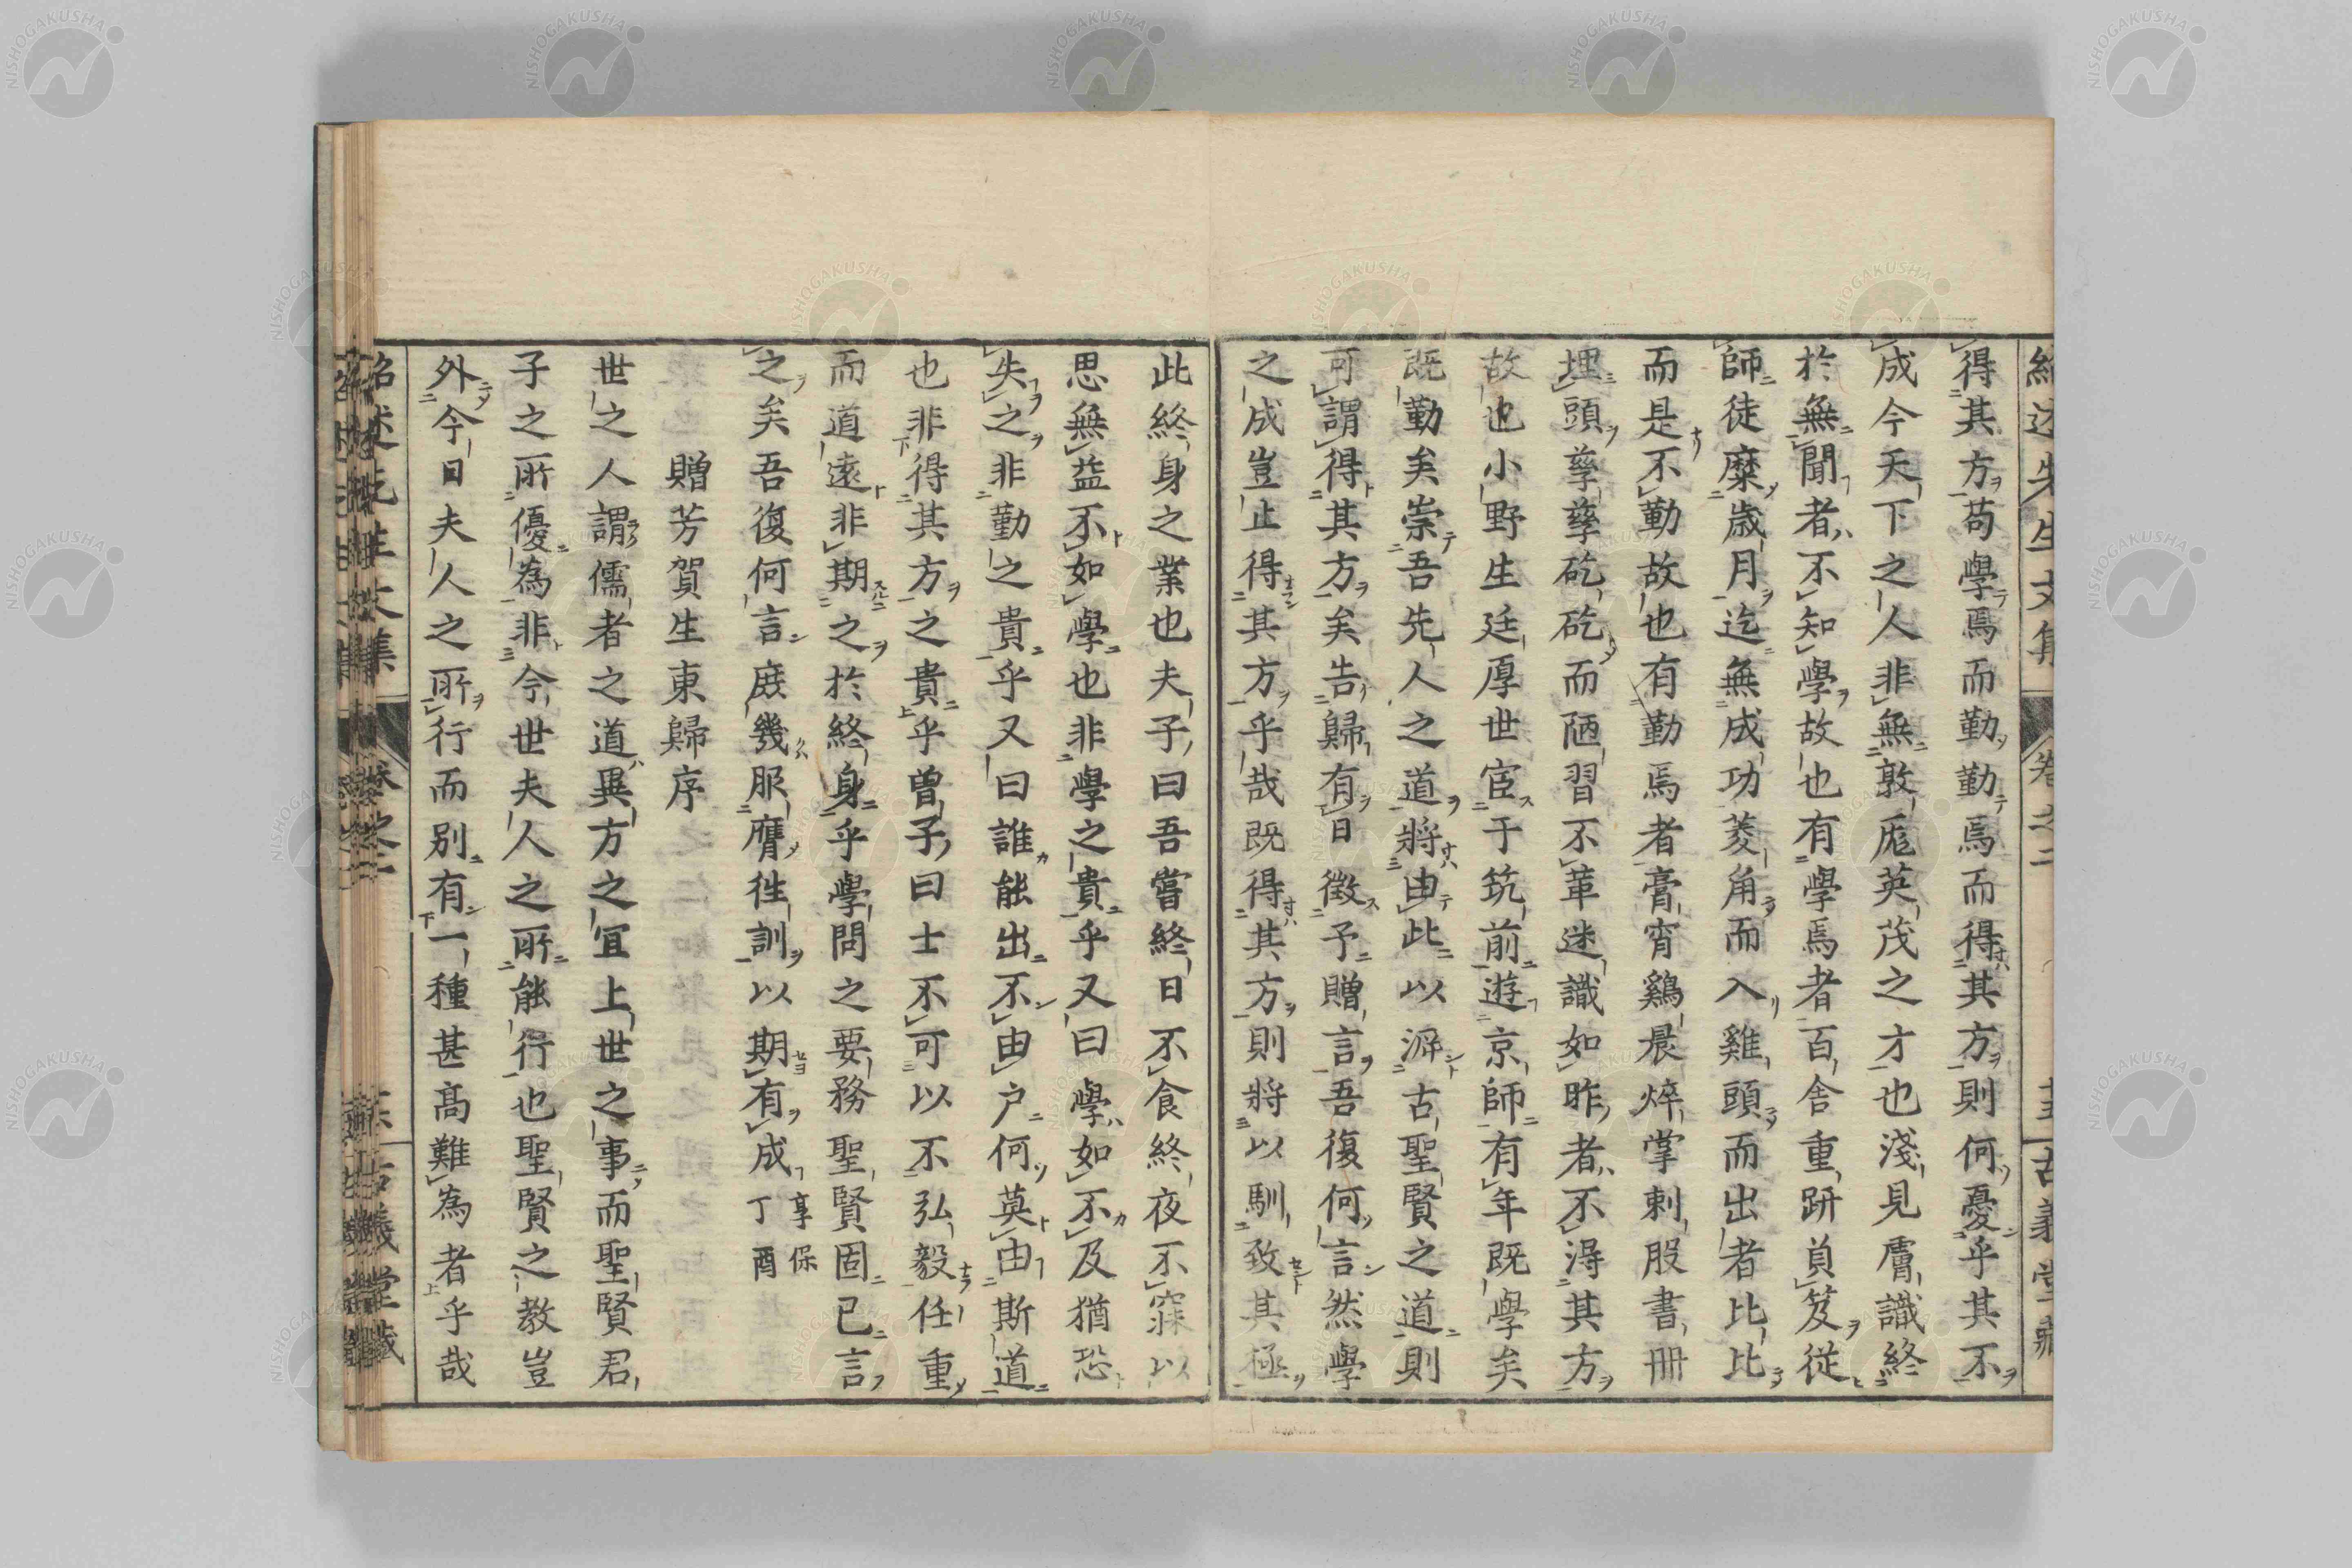 得其方苟學焉而勤勤焉而得其方則何憂乎其不
成今天下之人非無敦厖英茂之才也淺見膚識終
於無聞者不知學故也有學焉者百舍重趼負笈從
師徒糜歲月迄無成功菱角而入雞頭而出者比比
而是不勤故也有勤焉者膏宵鷄晨焠掌刺股書冊
埋頭孳孳矻矻而陋習不革迷識如昨者不得其方
故也小野生廷厚世宦于筑前遊京師有年既學矣
既勤矣崇吾先人之道將由此以泝古聖賢之道則
可謂得其方矣告歸有日徵予贈言吾復何言然學
之成豈止得其方乎哉既得其方則將以馴致其極
此終身之業也夫子曰吾嘗終日不食終夜不寐以
思無益不如學也非學之貴乎又曰學如不及猶恐
失之非勤之貴乎又曰誰能出不由戶何莫由斯道
也非得其方之貴乎曾子曰士不可以不弘毅任重
而道遠非期之於終身乎學問之要務聖賢固已言
之矣吾復何言庶幾服膺徃訓以期有成 享保丁酉
贈芳賀生東歸序
世之人謂儒者之道異方之宜上世之事而聖賢君
子之所優為非今世夫人之所能行也聖賢之教豈
外今日夫人之所行而別有一種甚高難為者乎哉
紹述先生文集 卷之二 古義堂藏